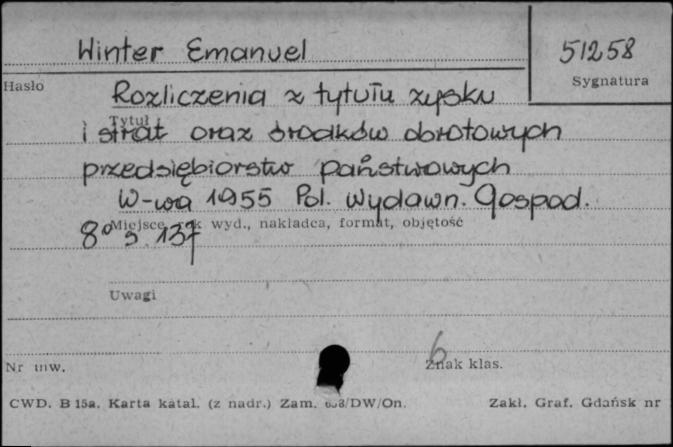 Winter Emanuel 51258
Hasło Sygnatura
Rozliczenia z tytułu zysku
Tytuł
i strat oraz środków obrotowych
przedsiębiorstw państwowych
W-wa 1955 Pol. Wydawn. Gospod.
Miejsce, rok wyd., nakładca, format, objętość
8° s. 137
Uwagi
6
Nr inw. Znak klas.
CWD. B 15a. Karta katal. (z nadr.) Zam. /DW/On. Zakł. Graf. Gdańsk nr